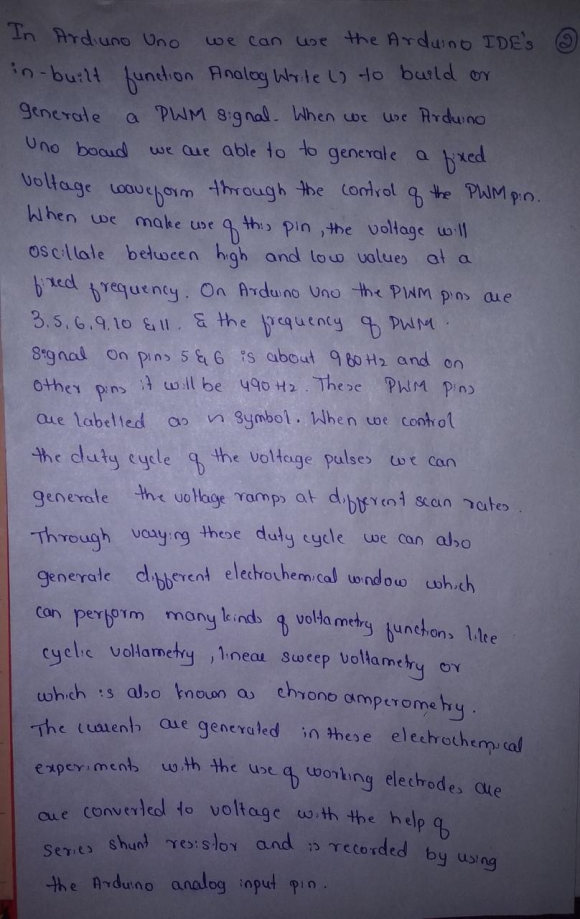 In Arduino Uno we can use the Arduino IDE's ②
in-built function AnalogWrite () to build or
generate a PWM signal. When we use Arduino
Uno board we are able to to generate a fixed
voltage waveform through the control of the PWM pin.
When we make use of this pin, the voltage will
oscillate between high and low values at a
fixed frequency. On Arduino Uno the PWM pins are
3, 5, 6, 9, 10 & 11. & the frequency of PWM.
signal on pins 5 & 6 is about 980Hz and on
other pins it will be 490Hz. These PWM pins
are labelled as n symbol. When we control
the duty cycle of the voltage pulses we can
generate the voltage ramps at different scan rates.
Through varying these duty cycle we can also
generate different electrochemical window which
can perform many kinds of voltametry functions like
cyclic voltametry, linear sweep voltametry or
which is also known as chrono amperometry.
The currents are generated in these electrochemical
experiments with the use of working electrodes are
are converted to voltage with the help of
series shunt resistor and is recorded by using
the Arduino analog input pin.